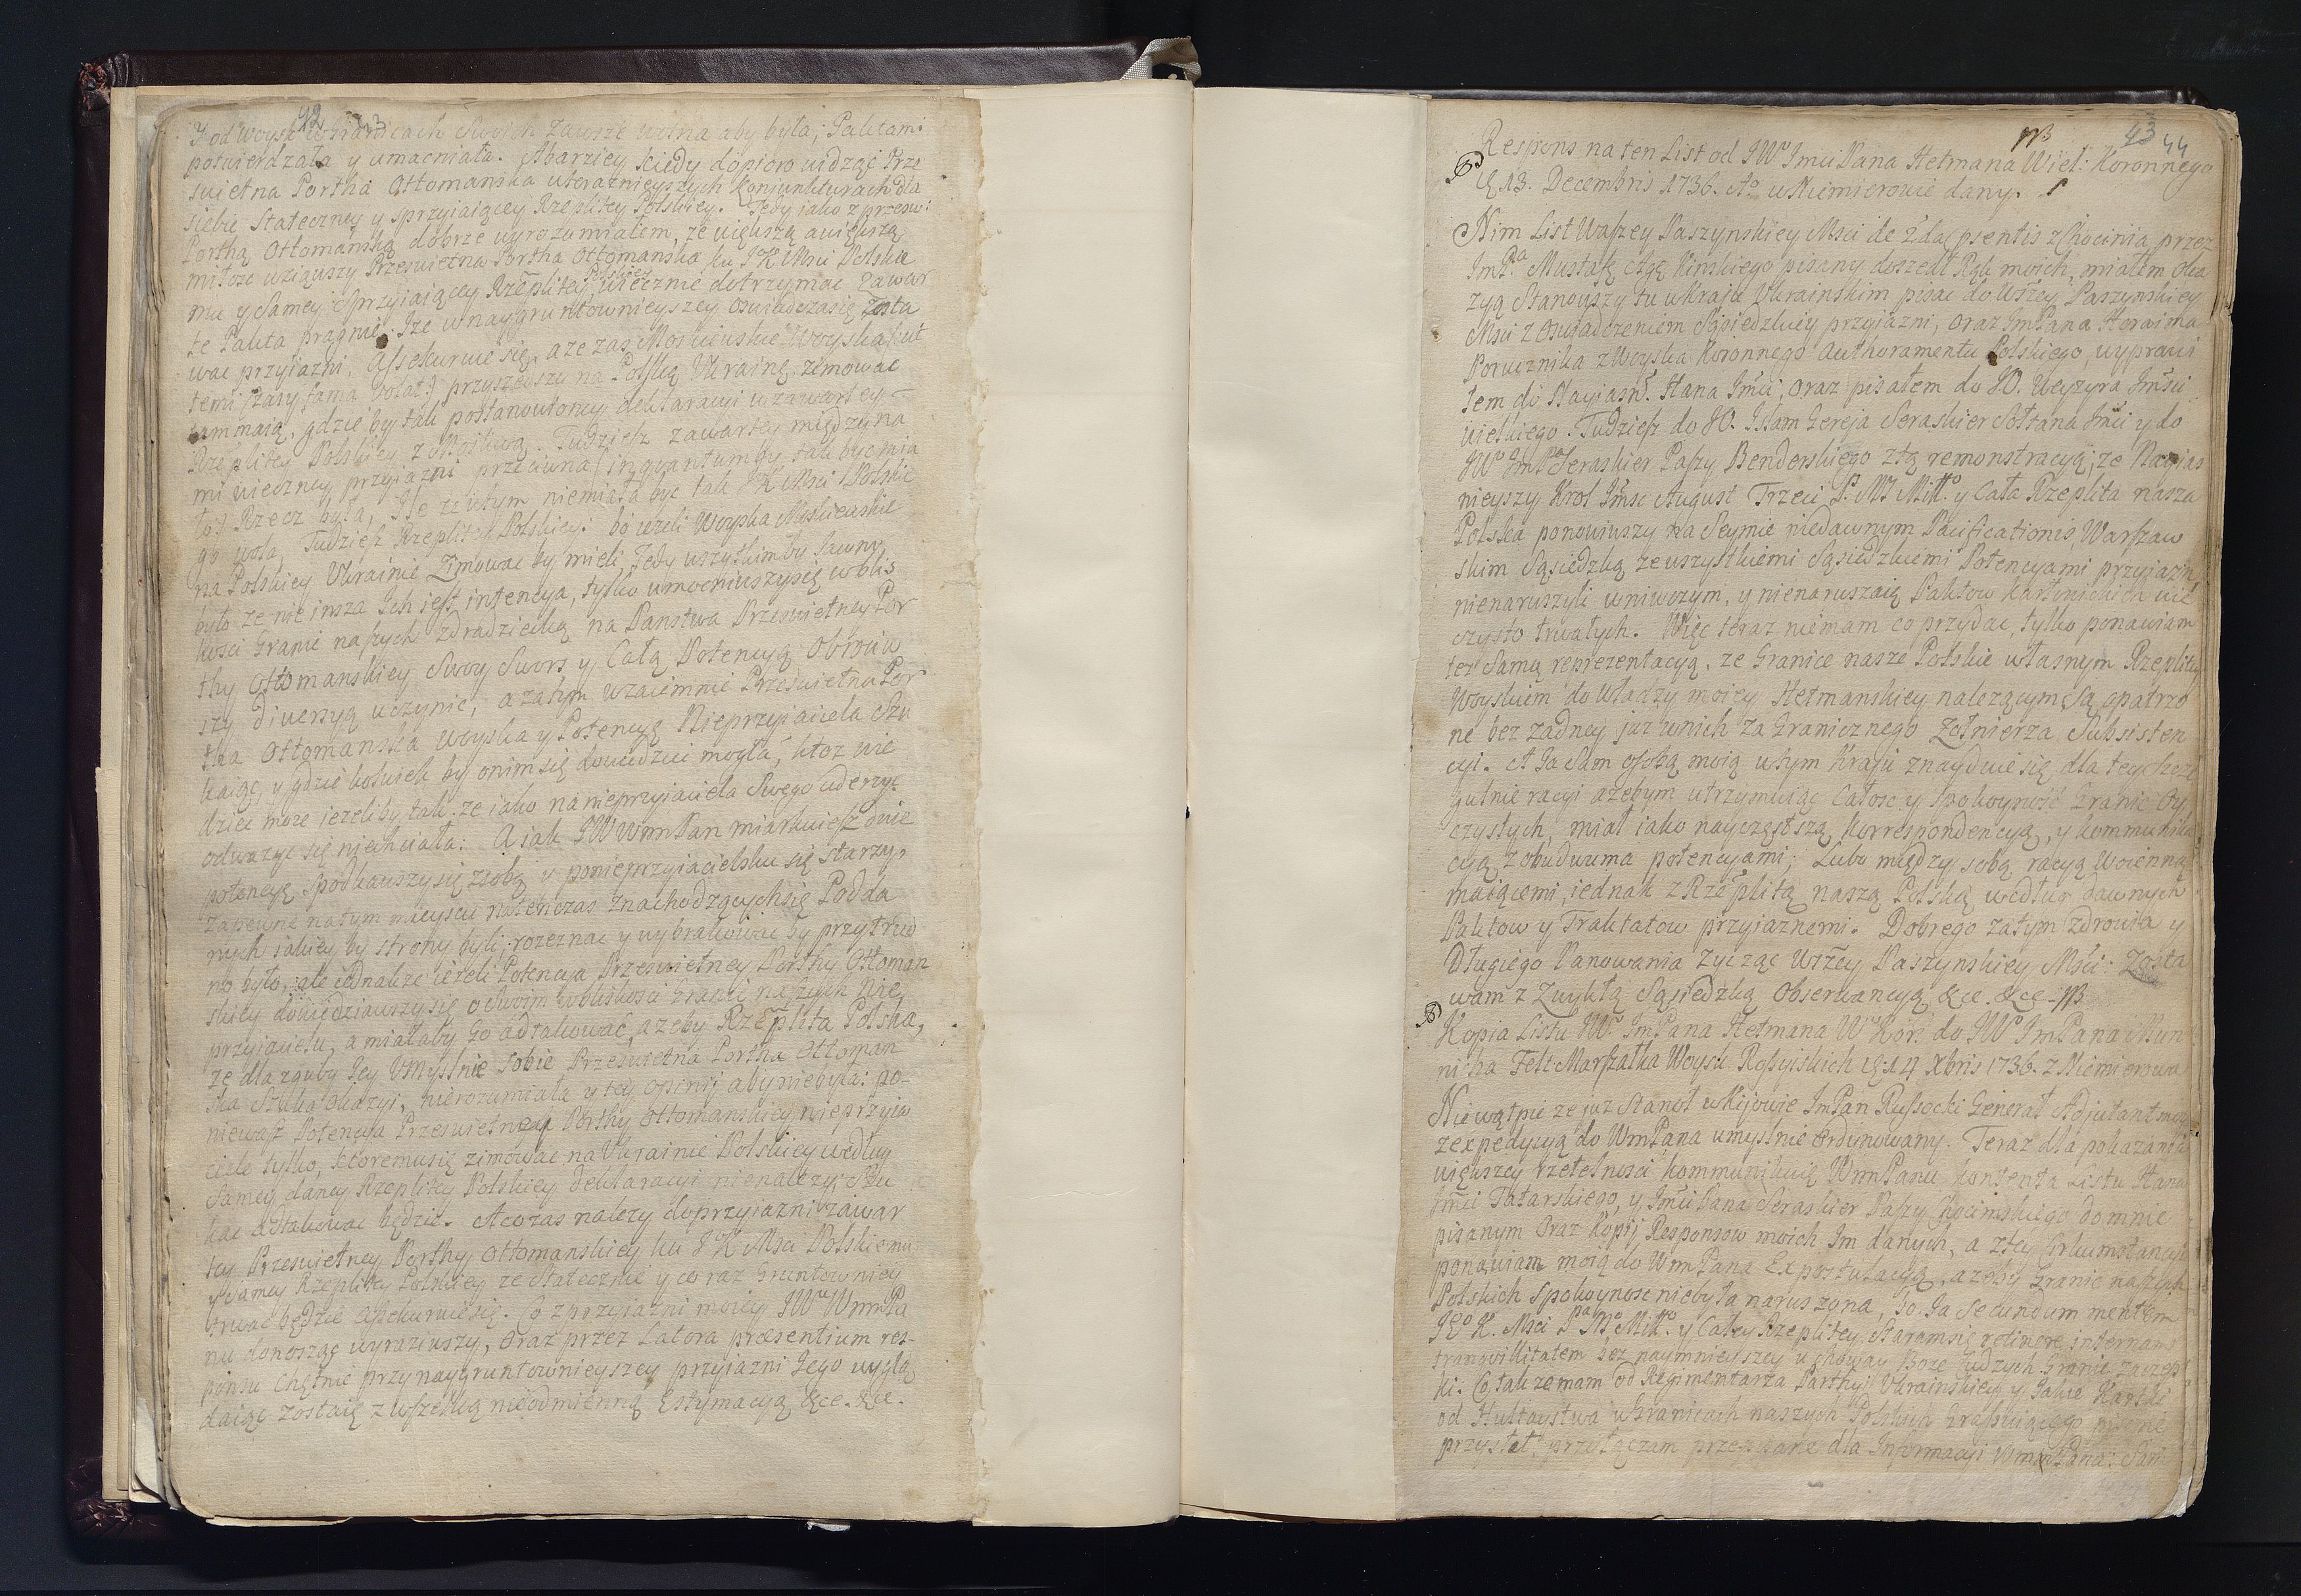 42
Y od Woysk w Granicach Swoich Zawsze wolna aby była, Paktami
potwierdzała y umacniała. Abarziey kiedy dopioro widząc Prze
swietna Portha Ottomanska uteraznieyszych koniunkturach dla
siebie Stateczney y sprzyiaiącey Rzeplitey Polskiey. Tedy iako z przesw:
Porthą Ottomanską dobrze wyrozumiałem, ze większą a większą
miłosc wziąwszy Przeswietna Portha Ottomanska ku J K Msci Polskie
mu y Samey Sprzyiaiącey Rzeplitey Polskiey wiecznie dotrzymac Zawar
te Pakta pragnie. Ize w naygruntownieyszey oswiadcza się Zosta
wac przyiazni, assekuruie się, a ze zas Moskiewskie Woyska (ut
temi czasy fama volat) przyszedszy na Polską Ukrainę zimowac
tam maią, gdzie by tak postanowioney deklaracyi w zawartey
Rzeplitey Polskiey z Moskwą. Tudziesz zawartey między na
mi wieczney przyiazni przeciwna (in quantum by tak byc mia
ło) Rzecz była, Ile ze w tym niemiała byc tak J K Mci Polskie
go wola, Tudziez Rzeplitey Polskiey: bo ieżeli Woyska Moskiewskie
na Polskiey Ukrainie Zimowac by mieli, Tedy wszytkim by Jawno
było ze nie insza Ich iest intencya, tylko umocniwszy się w blis
kosci Granic naszych zdradziecką na Panstwa Przeswietney Por
thy Ottomanskiey Swoy Swors y Całą Potencyą Obrociw
szy diversyą uczynic, a zatym wzaiemnie Przeswietna Por
tha Ottomanska woyska y Potencyą Nieprzyiaciela Szu
kaiąc, y gdzie kolwiek by onim się dowiedziec mogła, ktoz wie
dziec moze iezeliby tak ze iako na nieprzyiaciela Swego uderzyc
odwazyc się niechciała: A iak JW WmPan miarkuiesz dwie
potencye Spotkawszy się z sobą y ponieprzyiacielsku się starszy,
zapewne natym mieyscu natenczas znachodzących się Podda
nych iakiey by strony byli, rozeznac y wybrakowac by przytrud
no było, ale iednakze iezeli Potencya Przeswietney Porthy Ottoman
skiey dowiedziawszy się o Swoim w bliskosci Granic naszych Nie
przyiacielu, a miałaby Go attakowac, azeby Rzeplita Polska,
ze dla zguby Jey Umyslnie Sobie Przeswietna Portha Ottoman
ska Szuka okazyi, nierozumiała y tey opinij aby niebyła: po-
niewasz Potencya Przeswietney Porthy Ottomanskiey nieprzyia
ciele tylko, ktoremu się zimowac na Ukrainie Polskiey według
Samey daney Rzeplitey Polskiey Deklaracyi nienalezy: Szu
kac Attakowac będzie. A co zas nalezy do przyiazni zawar
tey Przeswietney Porthy Ottomanskiey ku J K Msci Polskiemu
y Samey Rzeplitey Polskiey, ze Statecznie y coraz Gruntowniey
trwac będzie assekuruie się. Co z przyiazni moiey JW WmPa
nu donosząc wyraziwszy, oraz przez Latora præsentium res-
ponsu Chętnie przy naygruntownieyszey przyiazni Jego wyglą
daiąc Zostaię z wszelką nieodmienną Estymacyą &ce. &ce.
43 44
Respons na ten List od JW Jmci Pana Hetmana Wiel: Koronnego
13. Decembris 1736. Ao w Niemierowie dany.
Nim List Waszey Paszynskiey Msci de 2da psentis z Chocimia przez
ImPa Mustafę Agę Kinskiego pisany doszedł Rąk moich, miałem oka
zyą Stanowszy tu w Kraju Ukrainskim pisac do Wszey Paszynskiey
Msci z Oswiadczeniem Sąsiedzkiey przyiazni, oraz ImPana Heraima
Porucznika z Woyska Koronnego Authoramentu Polskiego, wyprawi
łem do Nayiasn. Hana Jmci, oraz pisałem do JO. Wezyra Jmsci
wielkiego. Tudziesz do JO. Islam Gereja Seraskier Sołtana Jmci y do
JW ImPa Seraskier Paszy Benderskiego z tą remonstracyą, ze Nayias
nieyszy Krol Jmsc August Trzeci P. M. Miło. y Cała Rzeplita nasza
Polska ponowiwszy na Seymie niedawnym Pacificationis, Warszaw
skim Sąsiedzką ze wszystkiemi Sąsiedzkiemi Potencyami przyiazn
nienaruszyli w niwczym, y nienaruszaią Paktow Karłowickich wie
czysto trwałych. Więc teraz niemam co przydac, tylko ponawiam
tez Samą reprezentacyą, ze Granice nasze Polskie własnym Rzeplitey
Woyskiem do Władzy moiey Hetmanskiey nalezącym Są opatrzo
ne bez zadney juz w nich za Granicznego Zołnierza Subsisten
cyi. A Ja Sam osobą moią w tym Kraju znayduie się dla teyszcze
gulnie racyi azebym utrzymuiąc Całosc y Spokoyność Granic Oy
czystych, miał iako nayczęstszą korrespondencyą, y kommunika
cyą z obudwuma potencyami, Lubo między sobą racyą Woienną
maiącemi, iednak z Rzeplitą naszą Polską według dawnych
Paktow y Traktatow przyiaznemi. Dobrego zatym Zdrowia y
Długiego Panowania Zycząc Wszey Paszynskiey Msci: Zosta
wam z Zwykłą Sąsiedzką Obserwancyą &ce. &ce.
Kopia Listu JW ImPana Hetmana W Kor: do JW ImPana Mun
nicha Felt Marszałka Woysk Rossyiskich 14 Xbris 1736. z Niemierowa
Niewątpię ze juz Stanoł w Kijowie ImPan Russocki Generał Adjutant moy
z expedycyą do WmPana umyslnie Ordynowany. Teraz dla pokazania
większey rzetelnosci kommunikuię WmPanu kontenta Listu Hana
Jmci Tatarskiego, y Jmci Pana Seraskier Paszy Chocimskiego do mnie
pisanym Oraz Kopij Responsow moich Im danych, a z tey Cirkumstancyi
ponawiam moią do WmPana Expostulacyą, azeby Granic naszych
Polskich Spokoynosc niebyła naruszona, bo Ja Secundum mentem
JKo K. Msci Pa Mo Miło. y Całey Rzeplitey, Staram się retinere internam
tranquillitatem bez naymnieyszey uchoway Boze Cudzych Granic zaczep
ki. Co takze mam od Regimentarza Parthyi Ukrainskiey y Jakie Kartki
od Hultaystwa w Granicach naszych Polskich Grassuiącego
przysłał, przyłączam przepisane dla Informacyi WmPana: Sam